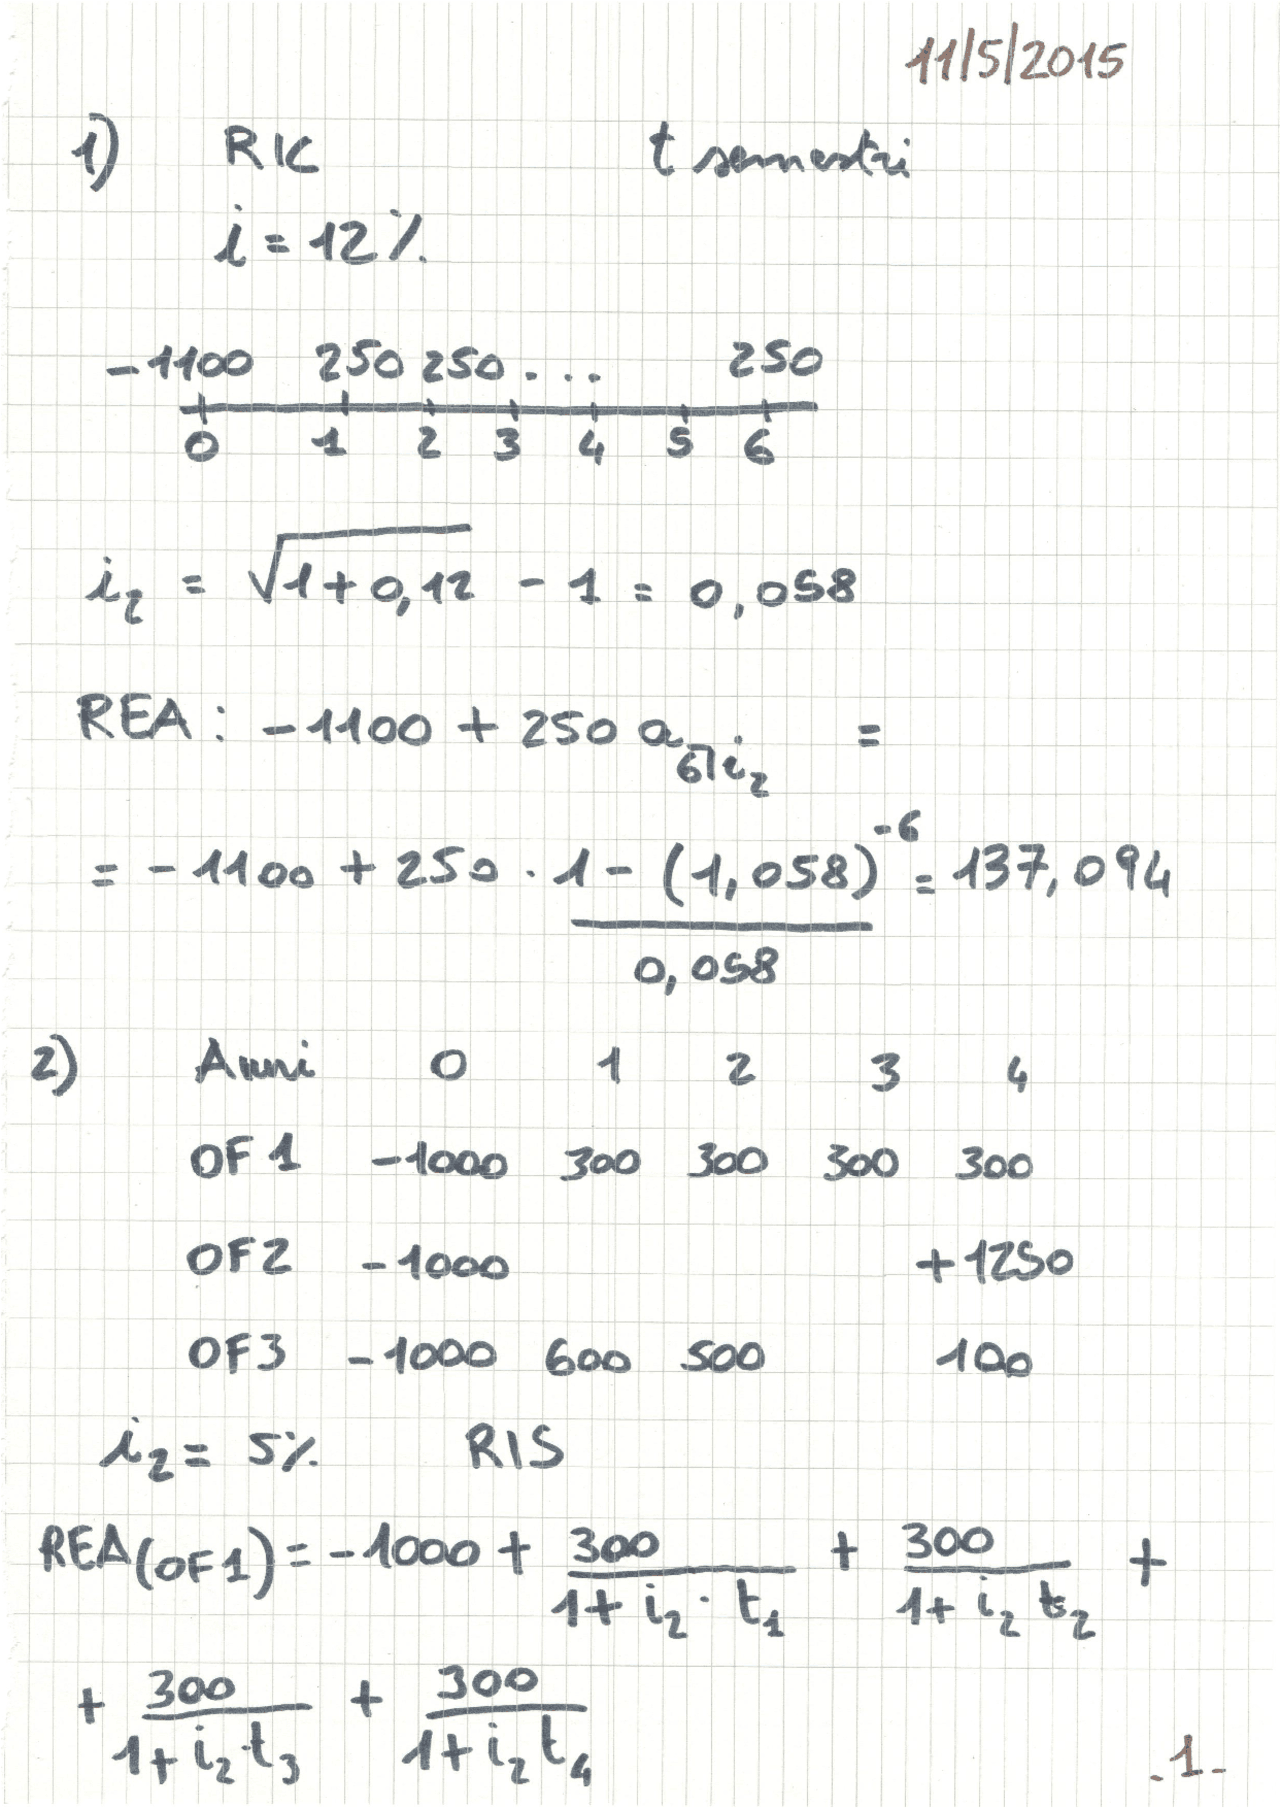 11/5/2015
1) RIC t semestri
i = 12%
-1100 250 250 . . . 250
0 1 2 3 4 5 6
i₂ = √(1+0,12) - 1 = 0,058
REA : -1100 + 250 a₆⌉i₂ =
= -1100 + 250 · (1 - (1,058)⁻⁶)/0,058 = 137,094
2) Anni 0 1 2 3 4
OF1 -1000 300 300 300 300
OF2 -1000 +1250
OF3 -1000 600 500 100
i₂ = 5% RIS
REA(OF1) = -1000 + 300/(1 + i₂ · t₁) + 300/(1 + i₂ t₂) +
+ 300/(1 + i₂·t₃) + 300/(1 + i₂ t₄)
.1-